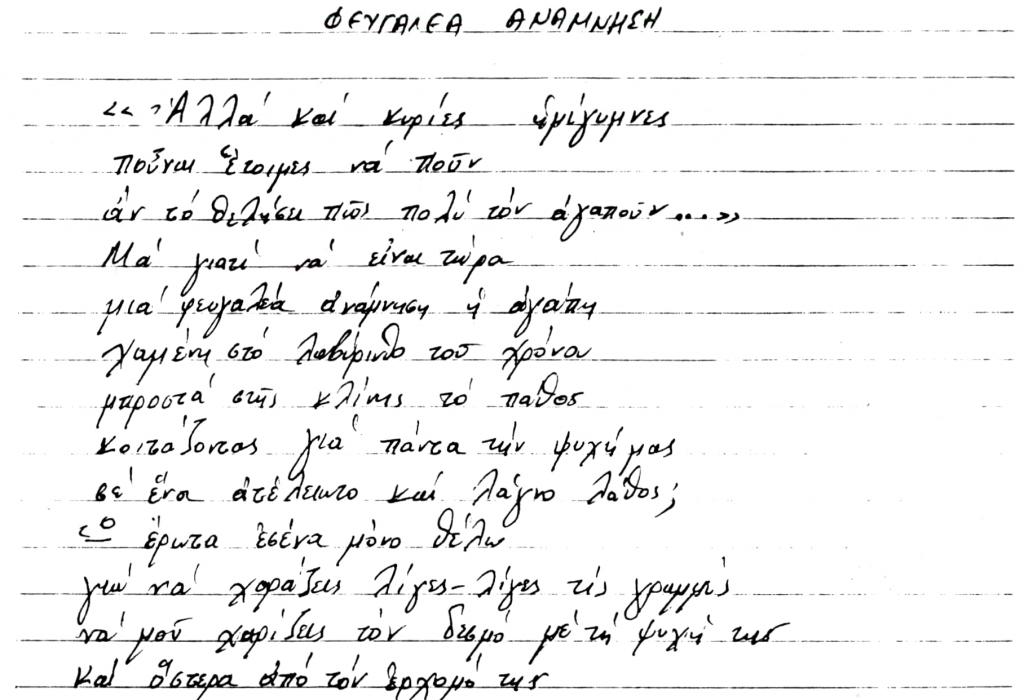 ΦΕΥΓΑΛΕΑ ΑΝΑΜΝΗΣΗ
<< Ἀλλά καί κυρίες ἡμίγυμνες
ποὖναι ἕτοιμες νά ποῦν
ἄν τό θελήσει πῶς πολύ τόν ἀγαποῦν...>>
Μά γιατί νά εἶναι τώρα
μιά φευγαλέα ἀνάμνηση ἡ ἀγάπη
χαμένη στό λαβύρινθο τοῦ χρόνου
μπροστά στῆς κλίνης τό πάθος
κοιτάζοντας γιά πάντα τήν ψυχή μας
σέ ἕνα ἀτέλειωτο καί λάγνο λάθος;
Ὦ ἔρωτα ἐσένα μόνο θέλω
γιά νά χαράζεις λίγες-λίγες τίς γραμμές
νά μοῦ χαρίζεις τόν δεσμό μέ τή ψυχή της
καί ὕστερα ἀπό τόν ἐρχομό της